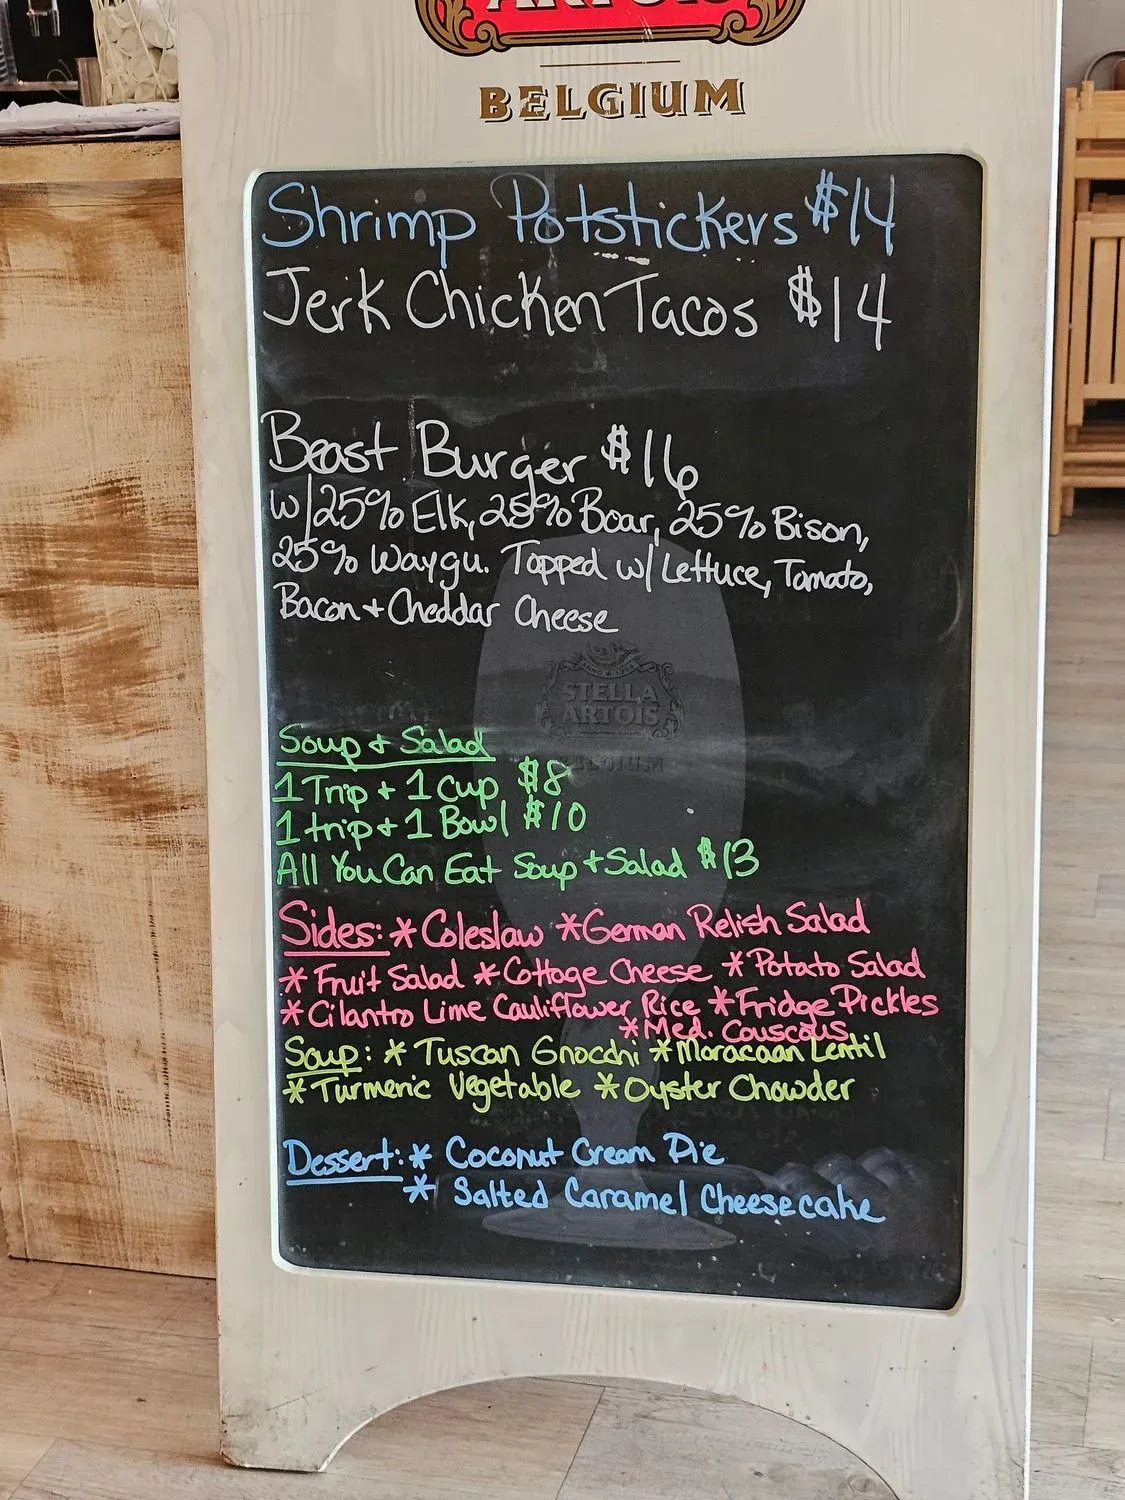 ARTOIS
BELGIUM
Shrimp Potstickers $14
Jerk Chicken Tacos $14
Beast Burger $16
w/25% Elk, 25% Boar, 25% Bison,
25% Waygu. Topped w/ Lettuce, Tomato,
Bacon + Cheddar Cheese
ANNO 1366
STELLA
ARTOIS
BELGIUM
Soup + Salad
1 Trip + 1 Cup $8
1 trip + 1 Bowl $10
All You Can Eat Soup + Salad $13
Sides: * Coleslaw * German Relish Salad
* Fruit Salad * Cottage Cheese * Potato Salad
* Cilantro Lime Cauliflower Rice * Fridge Pickles
* Med. Couscous
Soup: * Tuscan Gnocchi * Moracaan Lentil
* Turmeric Vegetable * Oyster Chowder
Dessert: * Coconut Cream Pie
* Salted Caramel Cheesecake